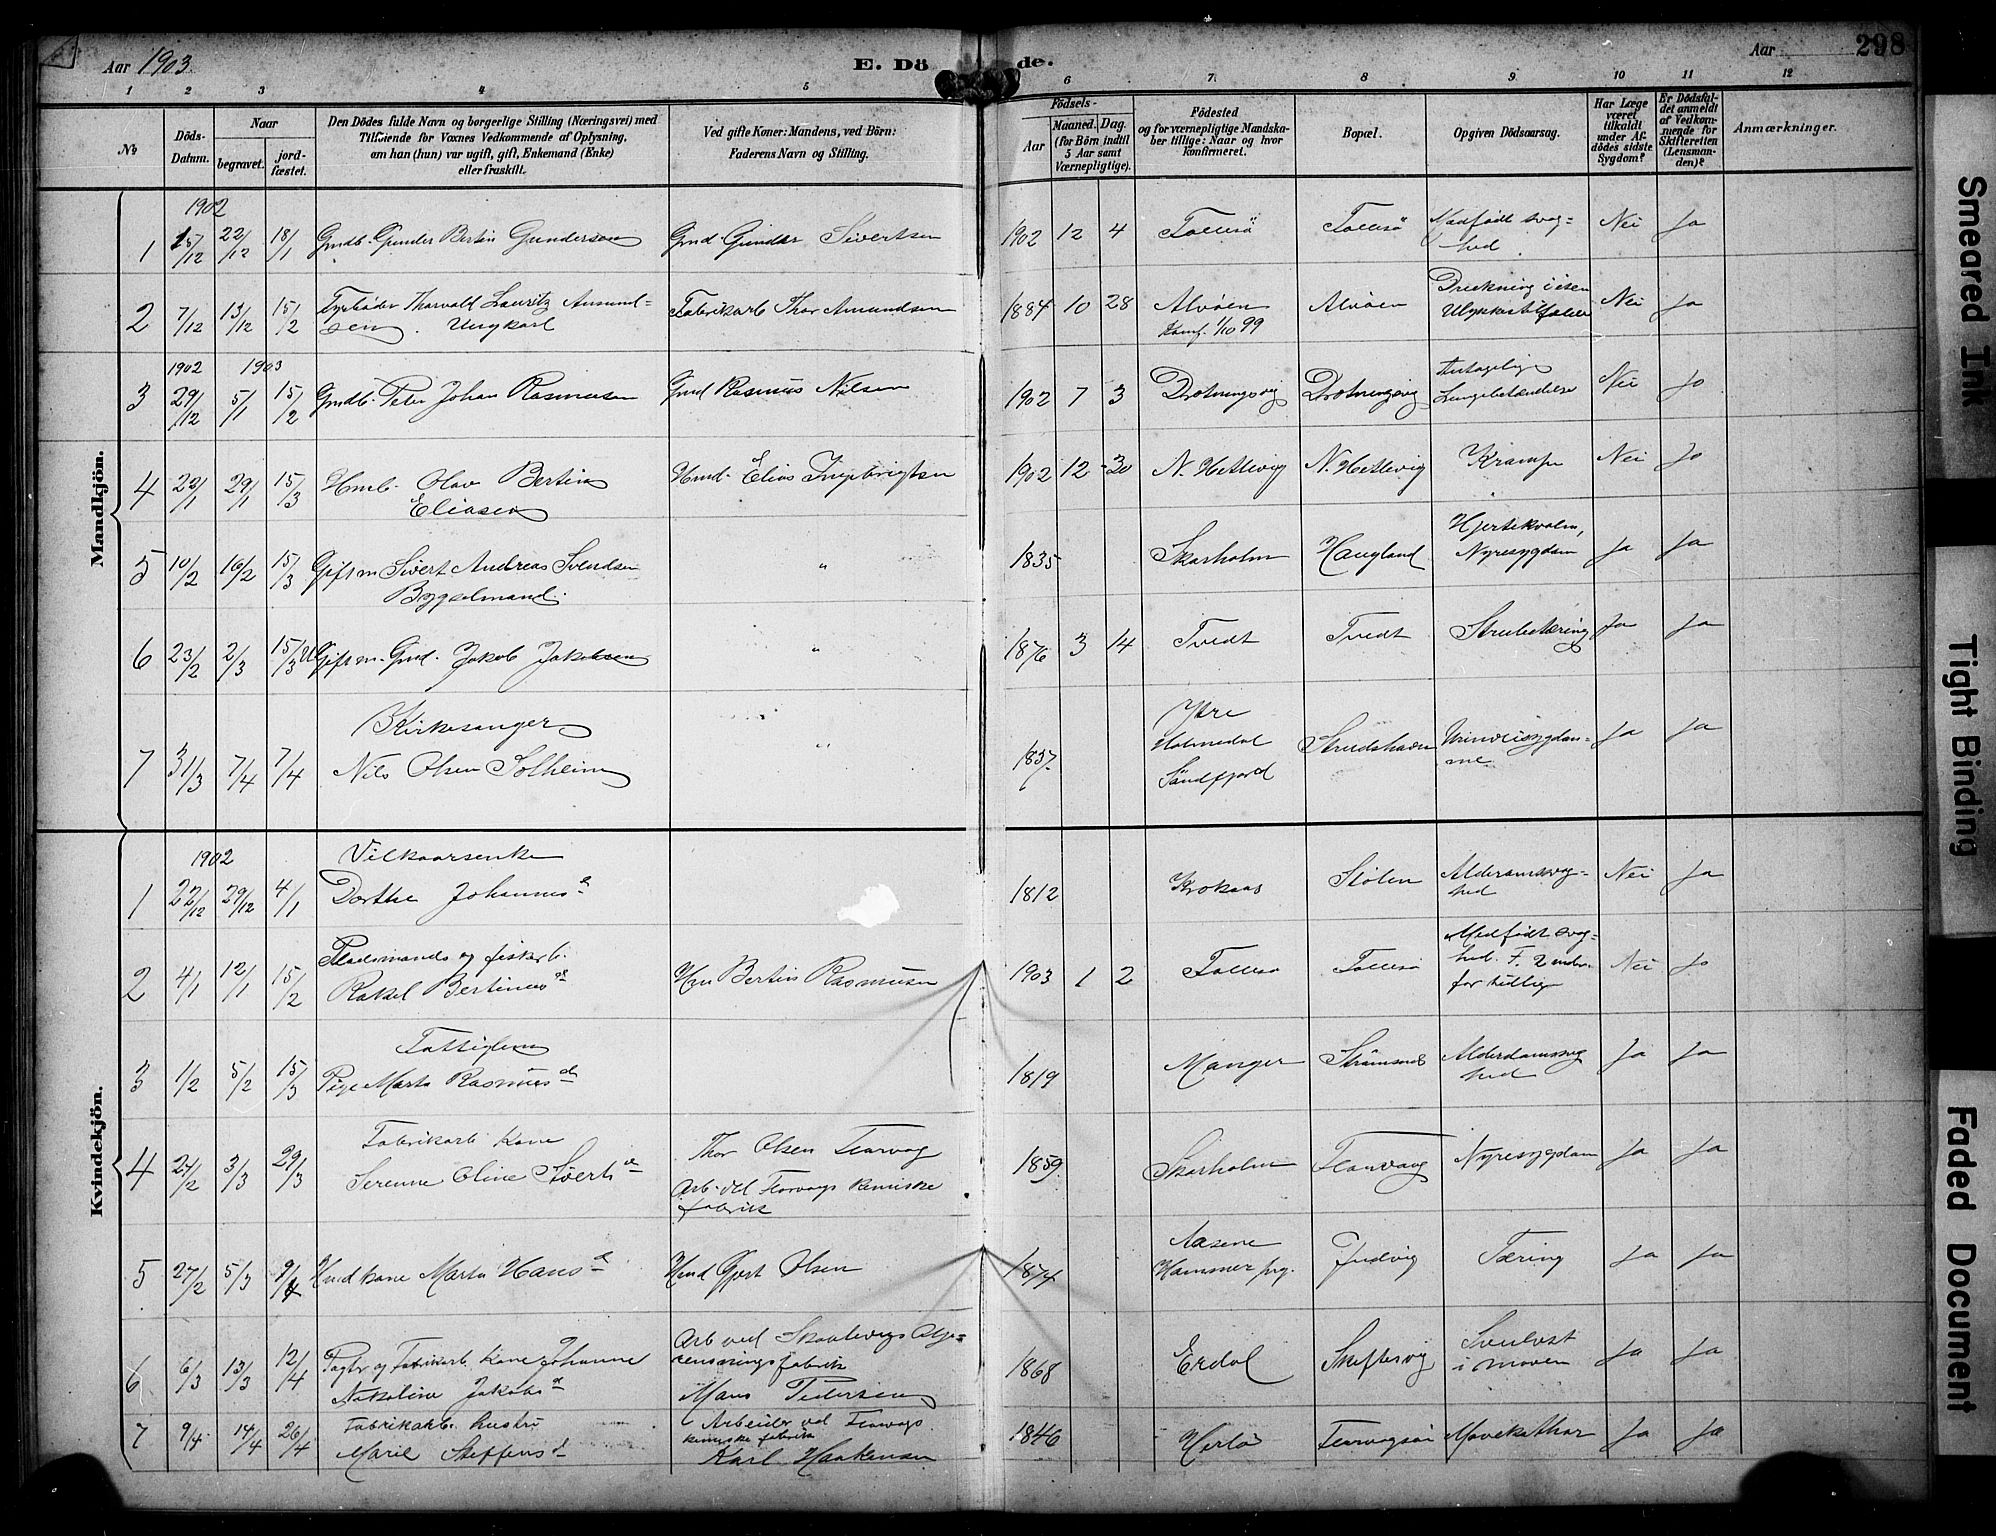 Aar 1903.
E. Dö de.
Aar
298
1 2 3 4 5 6 7. 8 9 10 11 12
No
Döds-
Datum.
Naar
begravet.
jord-
fæstet.
Den Dödes fulde Navn og borgerlige Stilling (Næringsvei) med
Tilföiende for Voxnes Vedkommende af Oplysning,
om han (hun) var ugift, gift, Enkemand (Enke)
eller fraskilt.
Ved gifte Koner: Mandens, ved Börn:
Faderens Navn og Stilling.
Födsels-
Aar
Maaned. Dag.
(for Börn indtil
5 Aar samt
Værnepligtige).
Födested
og for værnepligtige Mandska-
ber tillige: Naar og hvor
konfirmeret.
Bopæl.
Opgiven Dödsaarsag.
Har Læge
været
tilkaldt
under Af-
dödes sidste
Sygdom?
Er Dödsfal-
det anmeldt
af Vedkom-
mende for
Skifteretten
(Lensman-
den)?
Anmærkninger.
Mandkjön.
1902
1 15/12 22/12 18/1 Gmdb. Gunder Bertin Gundersen Gmd Gunder Sivertsen 1902 12 4 Follesö Follesö Medfödt svag=
hed Nei Ja
2 7/12 13/12 15/2 Fyrböder Thorvald Lauritz Amund=
sen. Ungkarl Fabrikarb Thor Amundsen 1884 10 28 Alvöen
Konf. 1/10 99 Alvöen Drukning i isen
Ulykkestilfælde Nei Ja
1902 1903
3 29/12 5/1 15/2 Gmdb. Peter Johan Rasmussen Gmd Rasmus Nilsen 1902 7 3 Drotningsvig Drotningsvig Antagelig
Lungebetændelse Nei Jo
4 22/1 29/1 15/3 Hmb. Olav Bertin
Eliasen Hmd. Elias Ingebrigtsen 1902 12 30 N. Hetlevig N. Hetlevig Krampe Nei Jo
5 10/2 16/2 15/3 Giftm Sivert Andreas Svendsen
Bygselmand. " 1835 Skarholm Haugland Hjertekvalm,
Nyresygdom Ja Ja
6 23/2 2/3 15/3 Giftm. Gmd. Jakob Jakobsen " 1876 3 14 Tvedt Tvedt Strubetæring Ja Ja
7 31/3 7/4 7/4 Kirkesanger
Nils Olsen Solheim " 1837. Ytre
Holmedal
Söndfjord Strudshavn Ja Ja
Kvindekjön.
1902
1 22/12 29/12 4/1 Vilkaarsenke
Dorthe Johannesd 1812 Krokaas Stölen Alderdomssvag=
hed Nei Ja
2 4/1 12/1 15/2 Pladsmands og fiskerb.
Rakel Bertinusd Hm Bertin Rasmusen 1903 1 2 Follesö Follesö Medfödt svag=
hed. F. 2
for tidlig Nei Jo
3 1/2 5/2 15/3 Fattiglem
Pige Marta Rasmusd 1819 Manger Strömsnes Alderdomssvag
hed Ja Ja
4 24/2 3/3 29/3 Fabrikarb Kone
Serenne Oline Sivertsd Thor Olsen Florvag
Arb. ved Florvags kemiske
fabrik 1859 Skarholm Florvaag Nyresygdom Ja Ja
5 27/2 5/3 Hmdkone Marta Hansd Hmd Gjert Olsen 1874 Aasene
Hammer prg. Tæring Ja Ja
6 6/3 13/3 12/4 Fabrikarb. Kone Johanne
Nikoline Jakobsd Arb ved Skaalevigs
rensningsfabrik
Mons Pedersen 1868 Erdal Skiftesvig Svulst
i maven Ja Ja
7 9/4 14/4 26/4 Fabrikarb. hustru
Marie Steffensd Arbeider ved Florvags
kemiske fabrik
Karl Haakensen 1846 Herlö Florvagsöen Mavekathar Ja Ja
Smeared Ink
Tight Binding
Faded Document